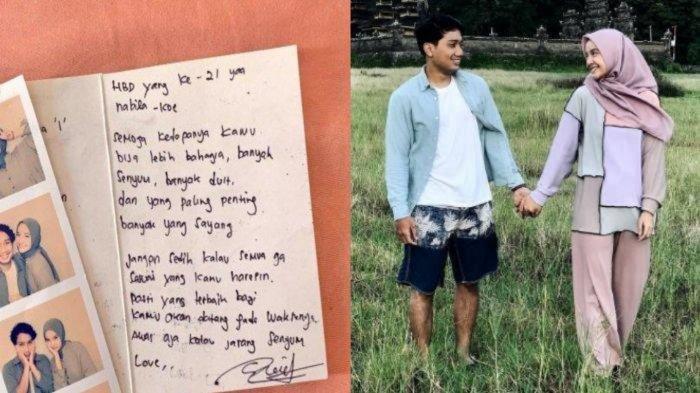 HBD yang ke-21 yaa
nabila -koe
semoga kedepanya kamu
bisa lebih bahagia, banyak
senyum, banyak duit.
dan yang paling penting
banyak yang sayang
jangan sedih kalau semua ga
sesuai yang kamu harepin.
pasti yang terbaik bagi
kamu akan datang pada waktunya
awas aja kalau jarang senyum
Love,